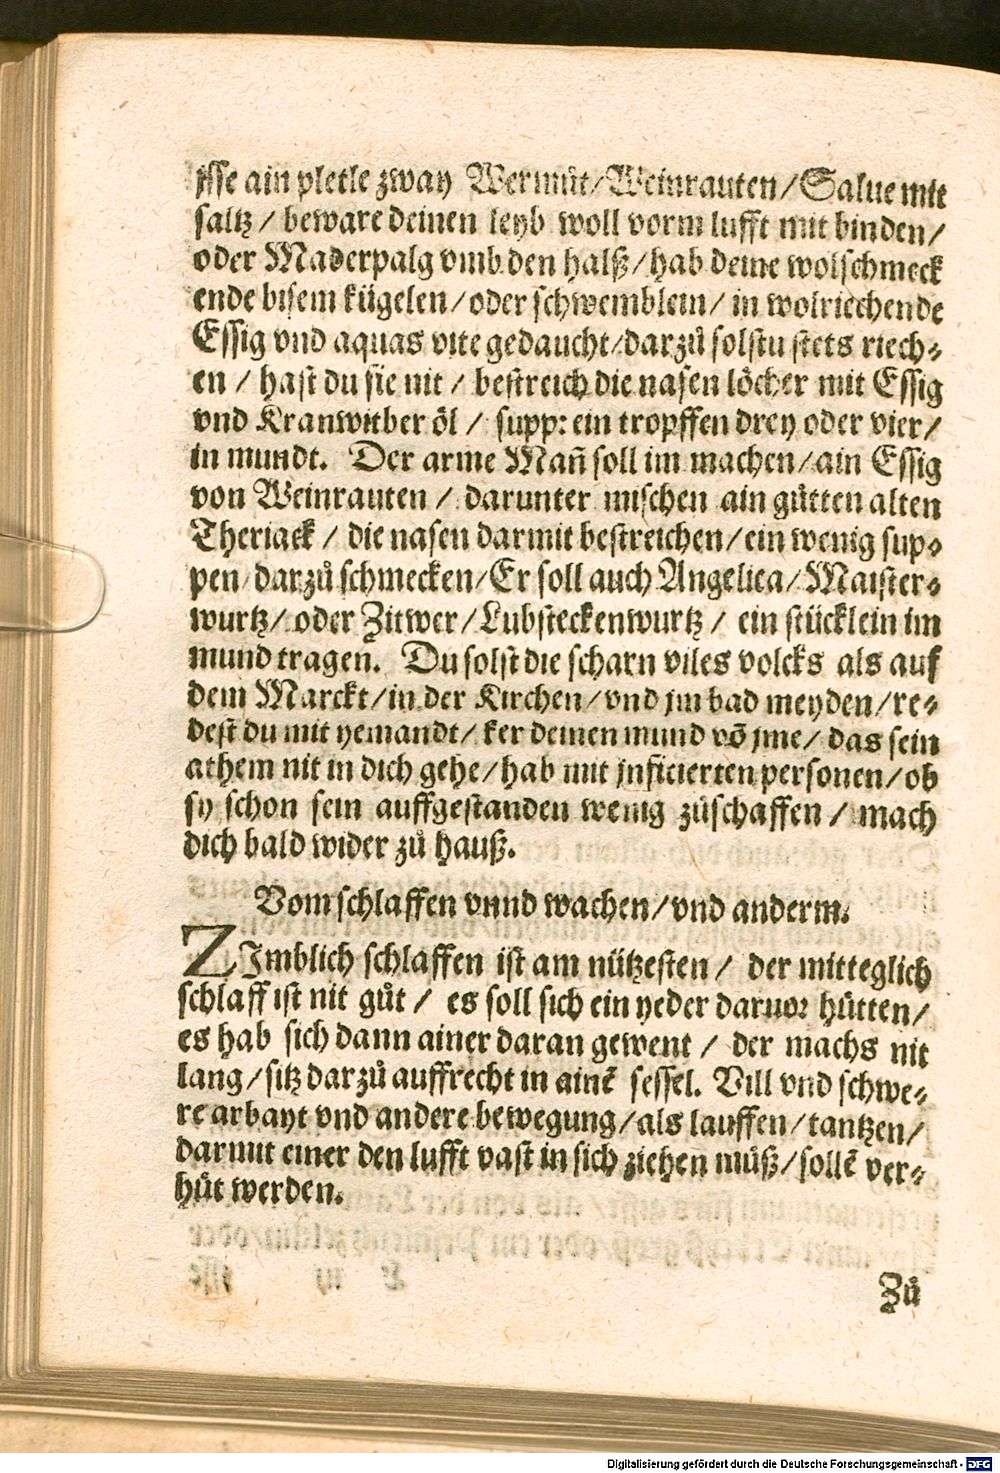 jsse ain pletle zway Wermůt/Weinrauten/Salue mit
saltz / beware deinen leyb woll vorm lufft mit binden/
oder Maderpalg vmb den halß/hab deine wolschmeck
ende bisem kügelen/oder schwemblein/ in wolriechende
Essig vnd aquas vite gedaucht/darzů solstu stets riech⸗
en / hast du sie nit / bestreich die nasen löcher mit Essig
vnd Kranwitber öl / supp: ein tropffen drey oder vier/
in mundt. Der arme Mañ soll im machen/ain Essig
von Weinrauten / darunter mischen ain gůtten alten
Theriack / die nasen darmit bestreichen/ein wenig sup⸗
pen/darzů schmecken/Er soll auch Angelica/Maister⸗
wurtz/oder Zitwer/Lubsteckenwurtz / ein stücklein im
mund tragen. Du solst die scharn viles volcks als auf
dem Marckt/in der Kirchen/vnd jm bad meyden/re⸗
dest du mit yemandt/ker deinen mund võ jme/ das sein
athem nit in dich gehe/hab mit jnficierten personen/ob
sy schon sein auffgestanden wenig zůschaffen / mach
dich bald wider zů hauß.
Vom schlaffen vnnd wachen/vnd anderm.
ZImblich schlaffen ist am nützesten / der mitteglich
schlaff ist nit gůt / es soll sich ein yeder daruor hütten/
es hab sich dann ainer daran gewent / der machs nit
lang/sitz darzů auffrecht in ainẽ sessel. Vill vnd schwe⸗
re arbayt vnd andere bewegung/als lauffen/tantzen/
darmit einer den lufft vast in sich ziehen můß/sollẽ ver⸗
hüt werden.
Zů
Digitalisierung gefördert durch die Deutsche Forschungsgemeinschaft - DFG